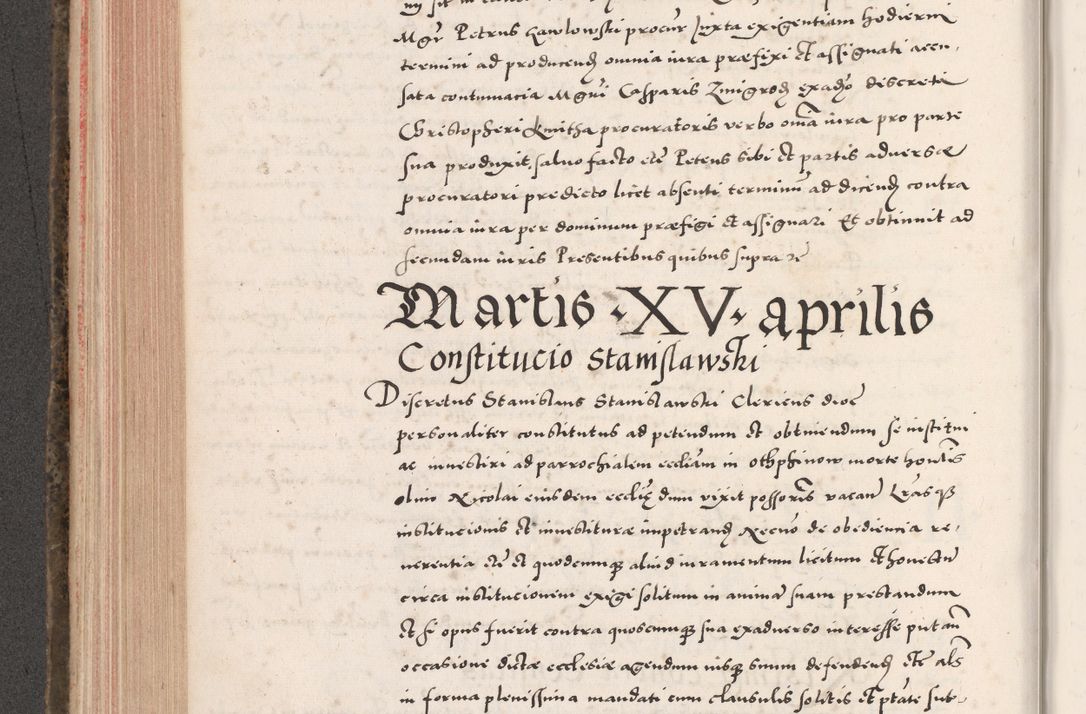 Mgri Petrus Zawlowski procur Juxta exigentiam hodierni
termini ad producend omnia iura præfixi et assignati accu,
sata contumacia Mgri Casparis Zmigrod exadso discreti
Christopheri Kmitha procuratoris verbo omnia iura pro parte
sua produxit, saluo facto etc Petens sibi et partis aduersæ
procuratori predicto licet absenti terminum ad dicend contra
omnia iura per dominum præfigi et assignari Et obtinuit ad
secundam iuris Presentibus quibus supra re
Martis · XV · aprilis
Constitucio Stanislawski
Discretus Stanislaus Stanislawski Clericus dioc
personaliter constitutus ad petendum et obtinendum se institui
ac inuestiri ad parrochialem eccliam in Othphinow morte honblis
olim Nicolai eiusdem ecclie dum vixit possoris vacan Lras q3
institucionis et inuestituræ impetrand Necno de obediencia re,
uerentia etc et quodcumq3 aliud iuramentum licitum et honestum
circa institucionem exigi solitum in animam suam prestandum
et si opus fuerit contra quoscumq3 sua exaduerso interesse putan
occasione dictæ ecclesiæ agendum iusq3 suum defendend etc als
in forma plenissima mandati cum clausulis solitis et ptate sub,